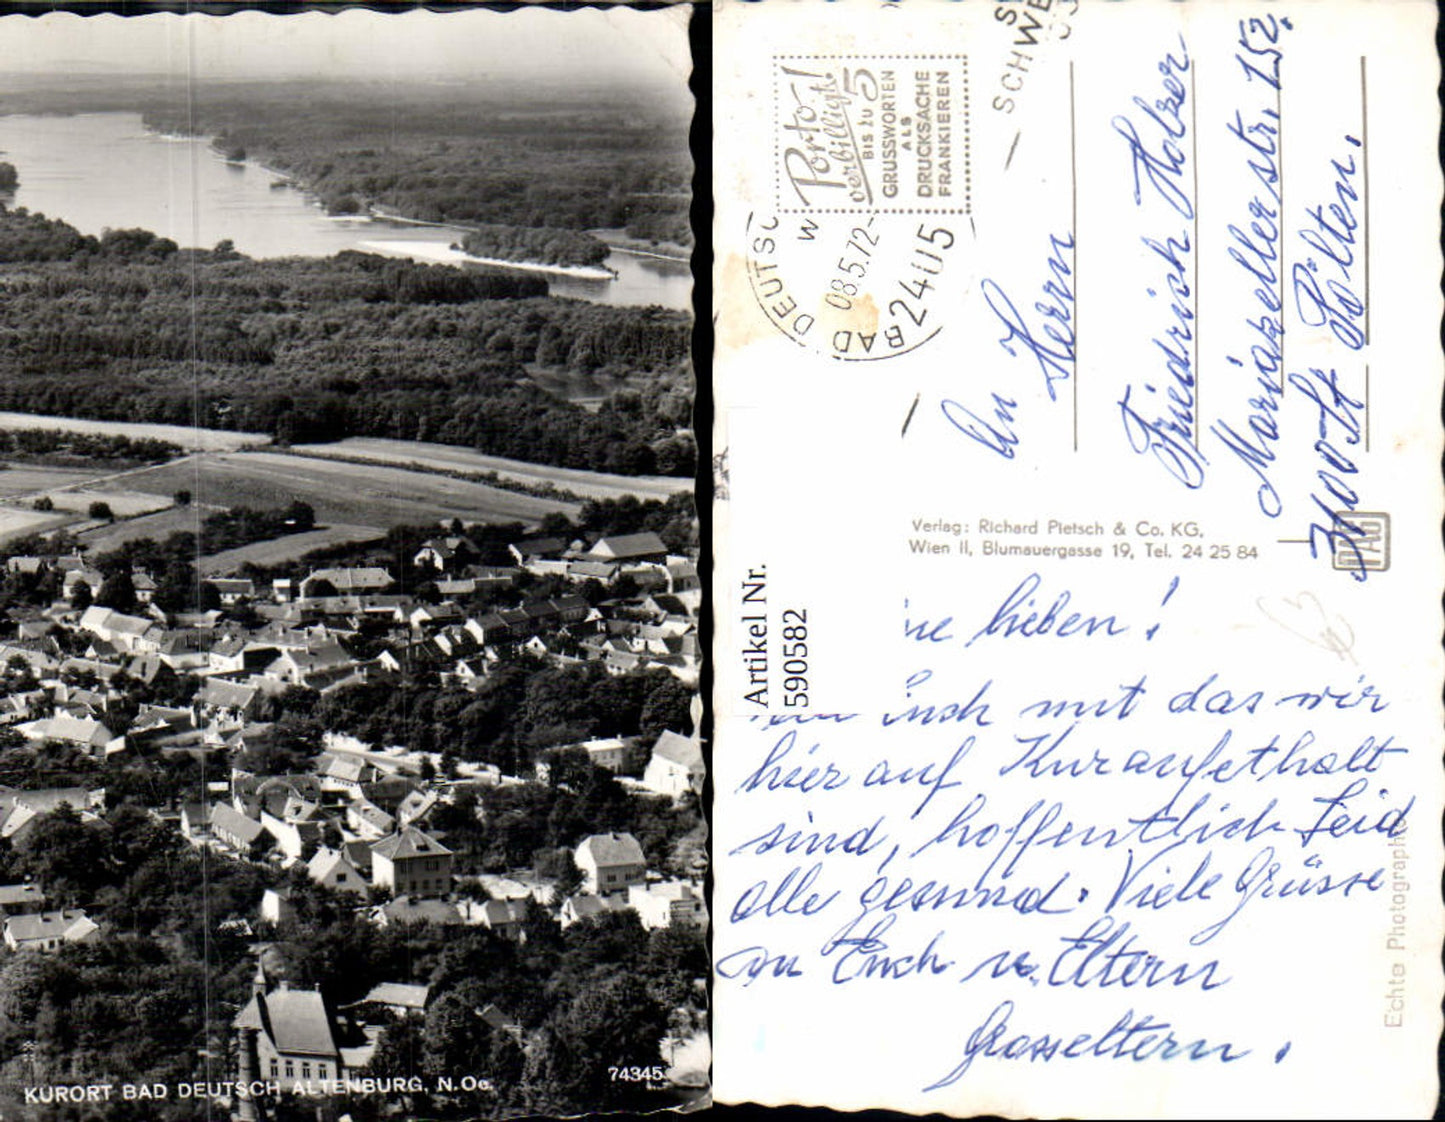 KURORT BAD DEUTSCH ALTENBURG, N.Oe.
74345
Porto-!
verbilligt!
BIS ZU 5
GRUSSWORTEN
ALS
DRUCKSACHE
FRANKIEREN
W
08.5.72-
2405
BAD DEUTSC
SCHWE
An
Herrn
Friedrich Holzer
Mariazellerstr. 152.
3100 St Pölten.
Verlag: Richard Pietsch & Co. KG.
Wien II, Blumauergasse 19, Tel. 24 25 84
Artikel Nr.
590582
ne lieben!
Euch mit das wir
hier auf Kuraufethalt
sind, hoffentlich Seid
alle gesund. Viele Grüsse
an Euch u. Eltern
Grosseltern.
Echte Photographie